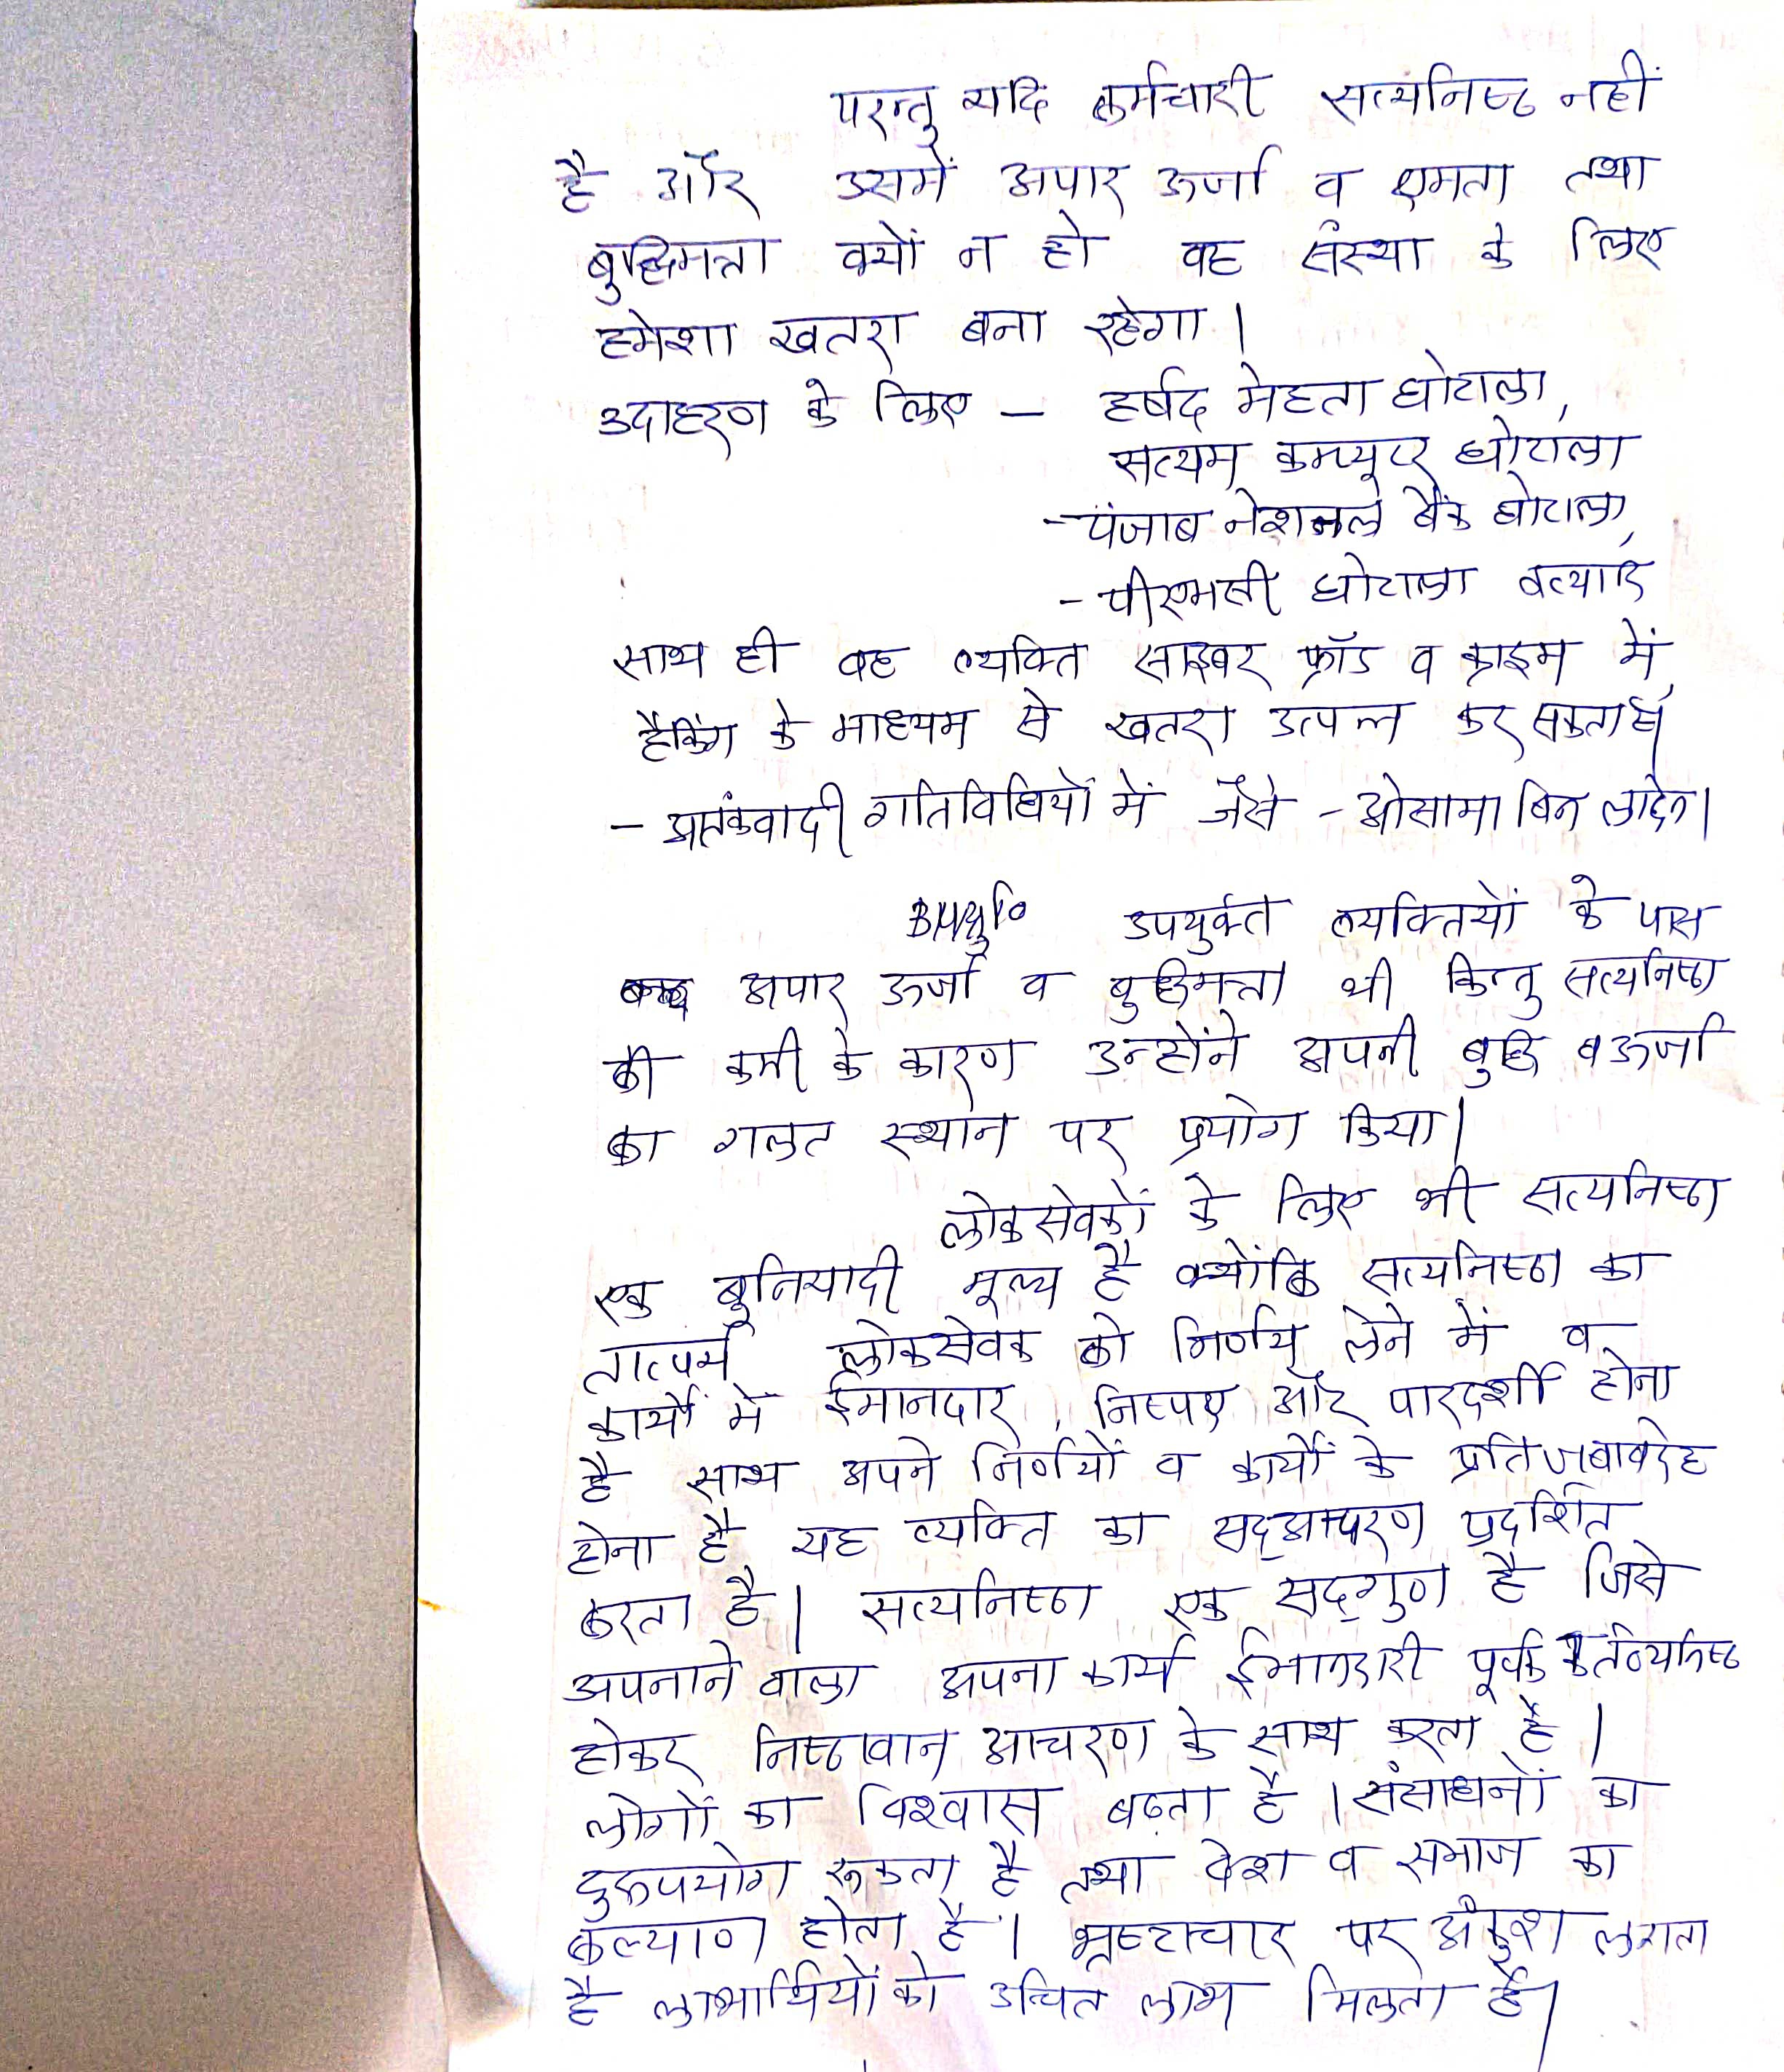 परन्तु यदि कर्मचारी सत्यनिष्ठ नहीं
है और उसमें अपार ऊर्जा व क्षमता तथा
बुद्धिमत्ता क्यों न हो वह संस्था के लिए
हमेशा खतरा बना रहेगा।
उदाहरण के लिए – हर्षद मेहता घोटाला,
सत्यम कम्प्यूटर घोटाला
- पंजाब नेशनल बैंक घोटाला,
- पीएमसी घोटाला इत्यादि
साथ ही वह व्यक्ति साइबर फ्रॉड व क्राइम में,
हैकिंग के माध्यम से खतरा उत्पन्न कर सकता है।
- आतंकवादी गतिविधियों में जैसे - ओसामा बिन लादेन।
उपर्युक्त व्यक्तियों के पास
अपार ऊर्जा व बुद्धिमत्ता थी किन्तु सत्यनिष्ठा
की कमी के कारण उन्होंने अपनी बुद्धि व ऊर्जा
का गलत स्थान पर प्रयोग किया।
लोकसेवकों के लिए भी सत्यनिष्ठा
एक बुनियादी मूल्य है क्योंकि सत्यनिष्ठा का
तात्पर्य लोकसेवक को निर्णय लेने में व
कार्यों में ईमानदार, निष्पक्ष और पारदर्शी होना
है साथ अपने निर्णयों व कार्यों के प्रति जबाबदेह
होना है यह व्यक्ति का सद्आचरण प्रदर्शित
करता है। सत्यनिष्ठा एक सद्गुण है जिसे
अपनाने वाला अपना कार्य ईमानदारी पूर्वक कर्तव्यनिष्ठ
होकर निष्ठावान आचरण के साथ करता है।
लोगों का विश्वास बढ़ता है। संसाधनों का
दुरूपयोग रूकता है तथा देश व समाज का
कल्याण होता है। भ्रष्टाचार पर अंकुश लगता
है लाभार्थियों को उचित लाभ मिलता है।